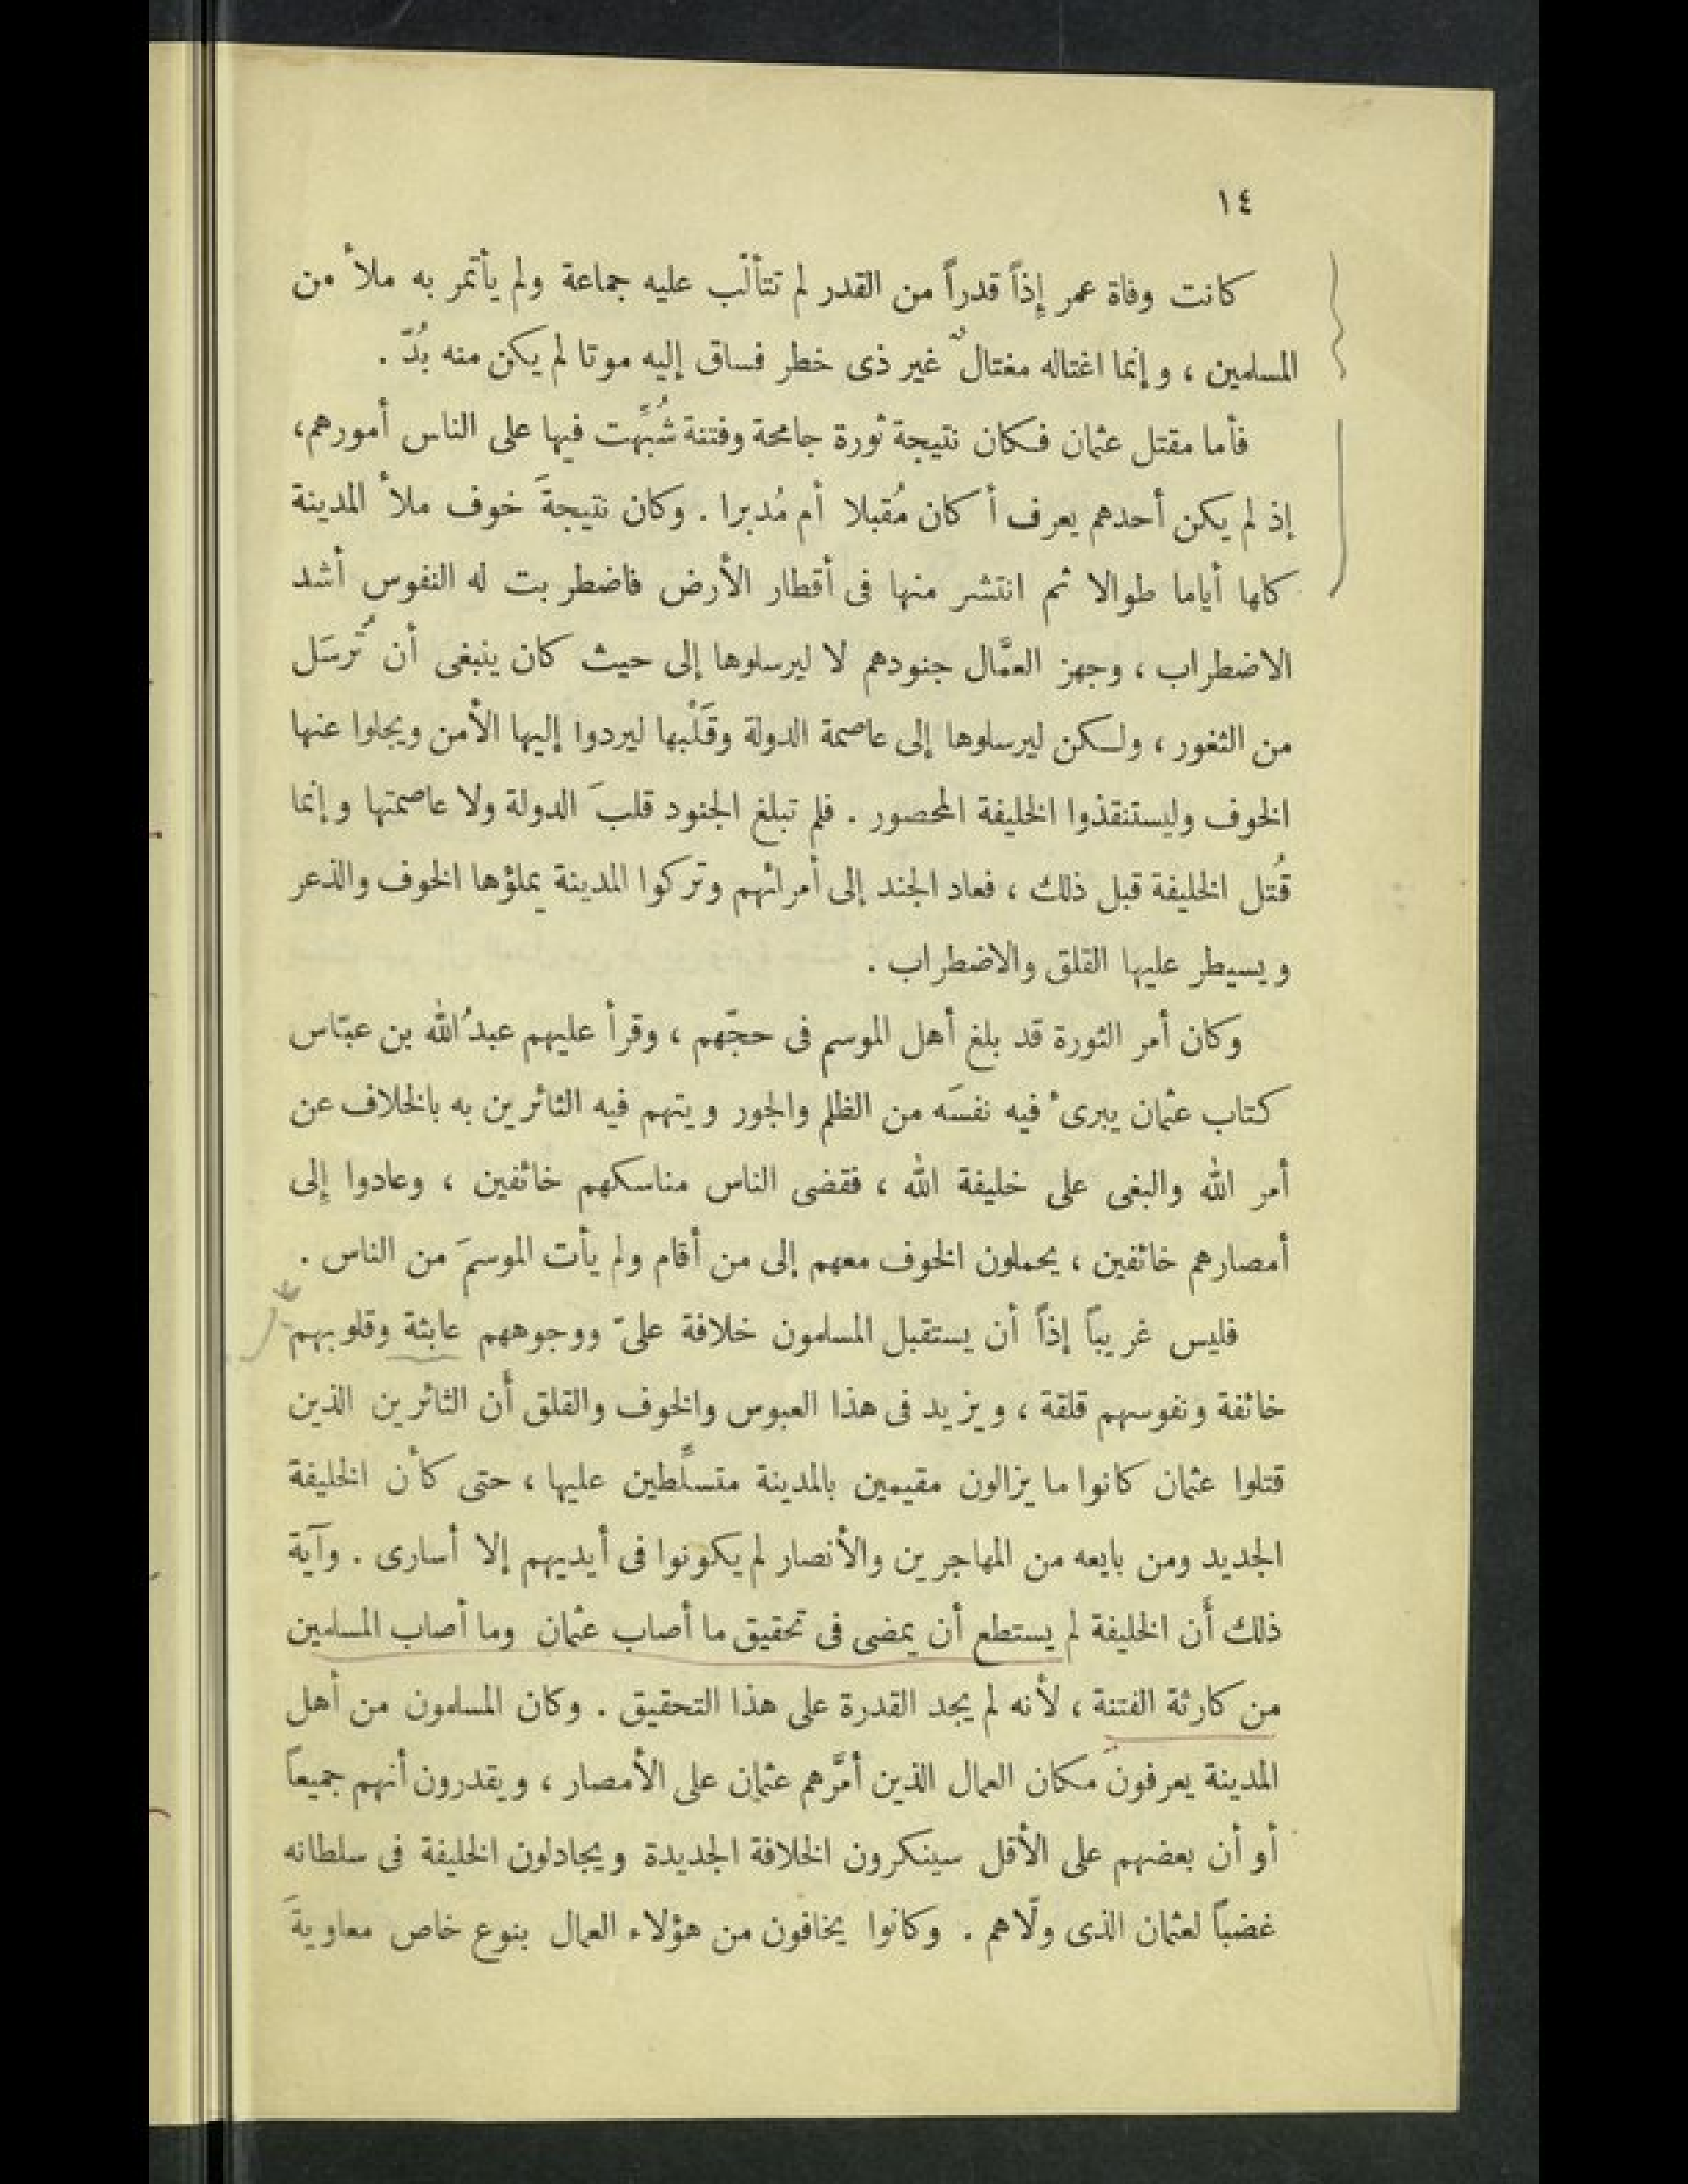 ١٤
كانت وفاة عمر إذاً قدراً من القدر لم تتألّب عليه جماعة ولم يأتمر به ملأ من
المسلمين ، وإنما اغتاله مغتالٌ غير ذى خطر فساق إليه موتا لم يكن منه بُدّ .
فأما مقتل عثمان فكان نتيجة ثورة جامحة وفتنة شُبِّهت فيها على الناس أمورهم،
إذ لم يكن أحدهم يعرف أ كان مُقبلا أم مُدبرا . وكان نتيجةَ خوف ملأ المدينة
كلها أياما طوالا ثم انتشر منها فى أقطار الأرض فاضطربت له النفوس أشد
الاضطراب ، وجهز العمَّال جنودهم لا ليرسلوها إلى حيث كان ينبغى أن تُرسَل
من الثغور ، ولكن ليرسلوها إلى عاصمة الدولة وقَلْبها ليردوا إليها الأمن ويجلوا عنها
الخوف وليستنقذوا الخليفة المحصور . فلم تبلغ الجنود قلبَ الدولة ولا عاصمتها وإنما
قُتل الخليفة قبل ذلك ، فعاد الجند إلى أمرائهم وتركوا المدينة يملؤها الخوف والذعر
ويسيطر عليها القلق والاضطراب .
وكان أمر الثورة قد بلغ أهل الموسم فى حجّهم ، وقرأ عليهم عبدُ الله بن عبّاس
كتاب عثمان يبرىُٔ فيه نفسَه من الظلم والجور ويتهم فيه الثائرين به بالخلاف عن
أمر الله والبغى على خليفة الله ، فقضى الناس مناسكهم خائفين ، وعادوا إلى
أمصارهم خائفين ، يحملون الخوف معهم إلى من أقام ولم يأت الموسمَ من الناس .
فليس غريباً إذاً أن يستقبل المسلمون خلافة علىّ ووجوههم عابثة وقلوبهم
خائفة ونفوسهم قلقة ، ويزيد فى هذا العبوس والخوف والقلق أن الثائرين الذين
قتلوا عثمان كانوا ما يزالون مقيمين بالمدينة متسلِّطين عليها ، حتى كأن الخليفة
الجديد ومن بايعه من المهاجرين والأنصار لم يكونوا فى أيديهم إلا أسارى . وآية
ذلك أن الخليفة لم يستطع أن يمضى فى تحقيق ما أصاب عثمان وما أصاب المسلمين
من كارثة الفتنة ، لأنه لم يجد القدرة على هذا التحقيق . وكان المسلمون من أهل
المدينة يعرفون مكان العمال الذين أمَّرهم عثمان على الأمصار ، ويقدرون أنهم جميعاً
أو أن بعضهم على الأقل سينكرون الخلافة الجديدة ويجادلون الخليفة فى سلطانه
غضباً لعثمان الذى ولّاهم . وكانوا يخافون من هؤلاء العمال بنوع خاص معاويةَ